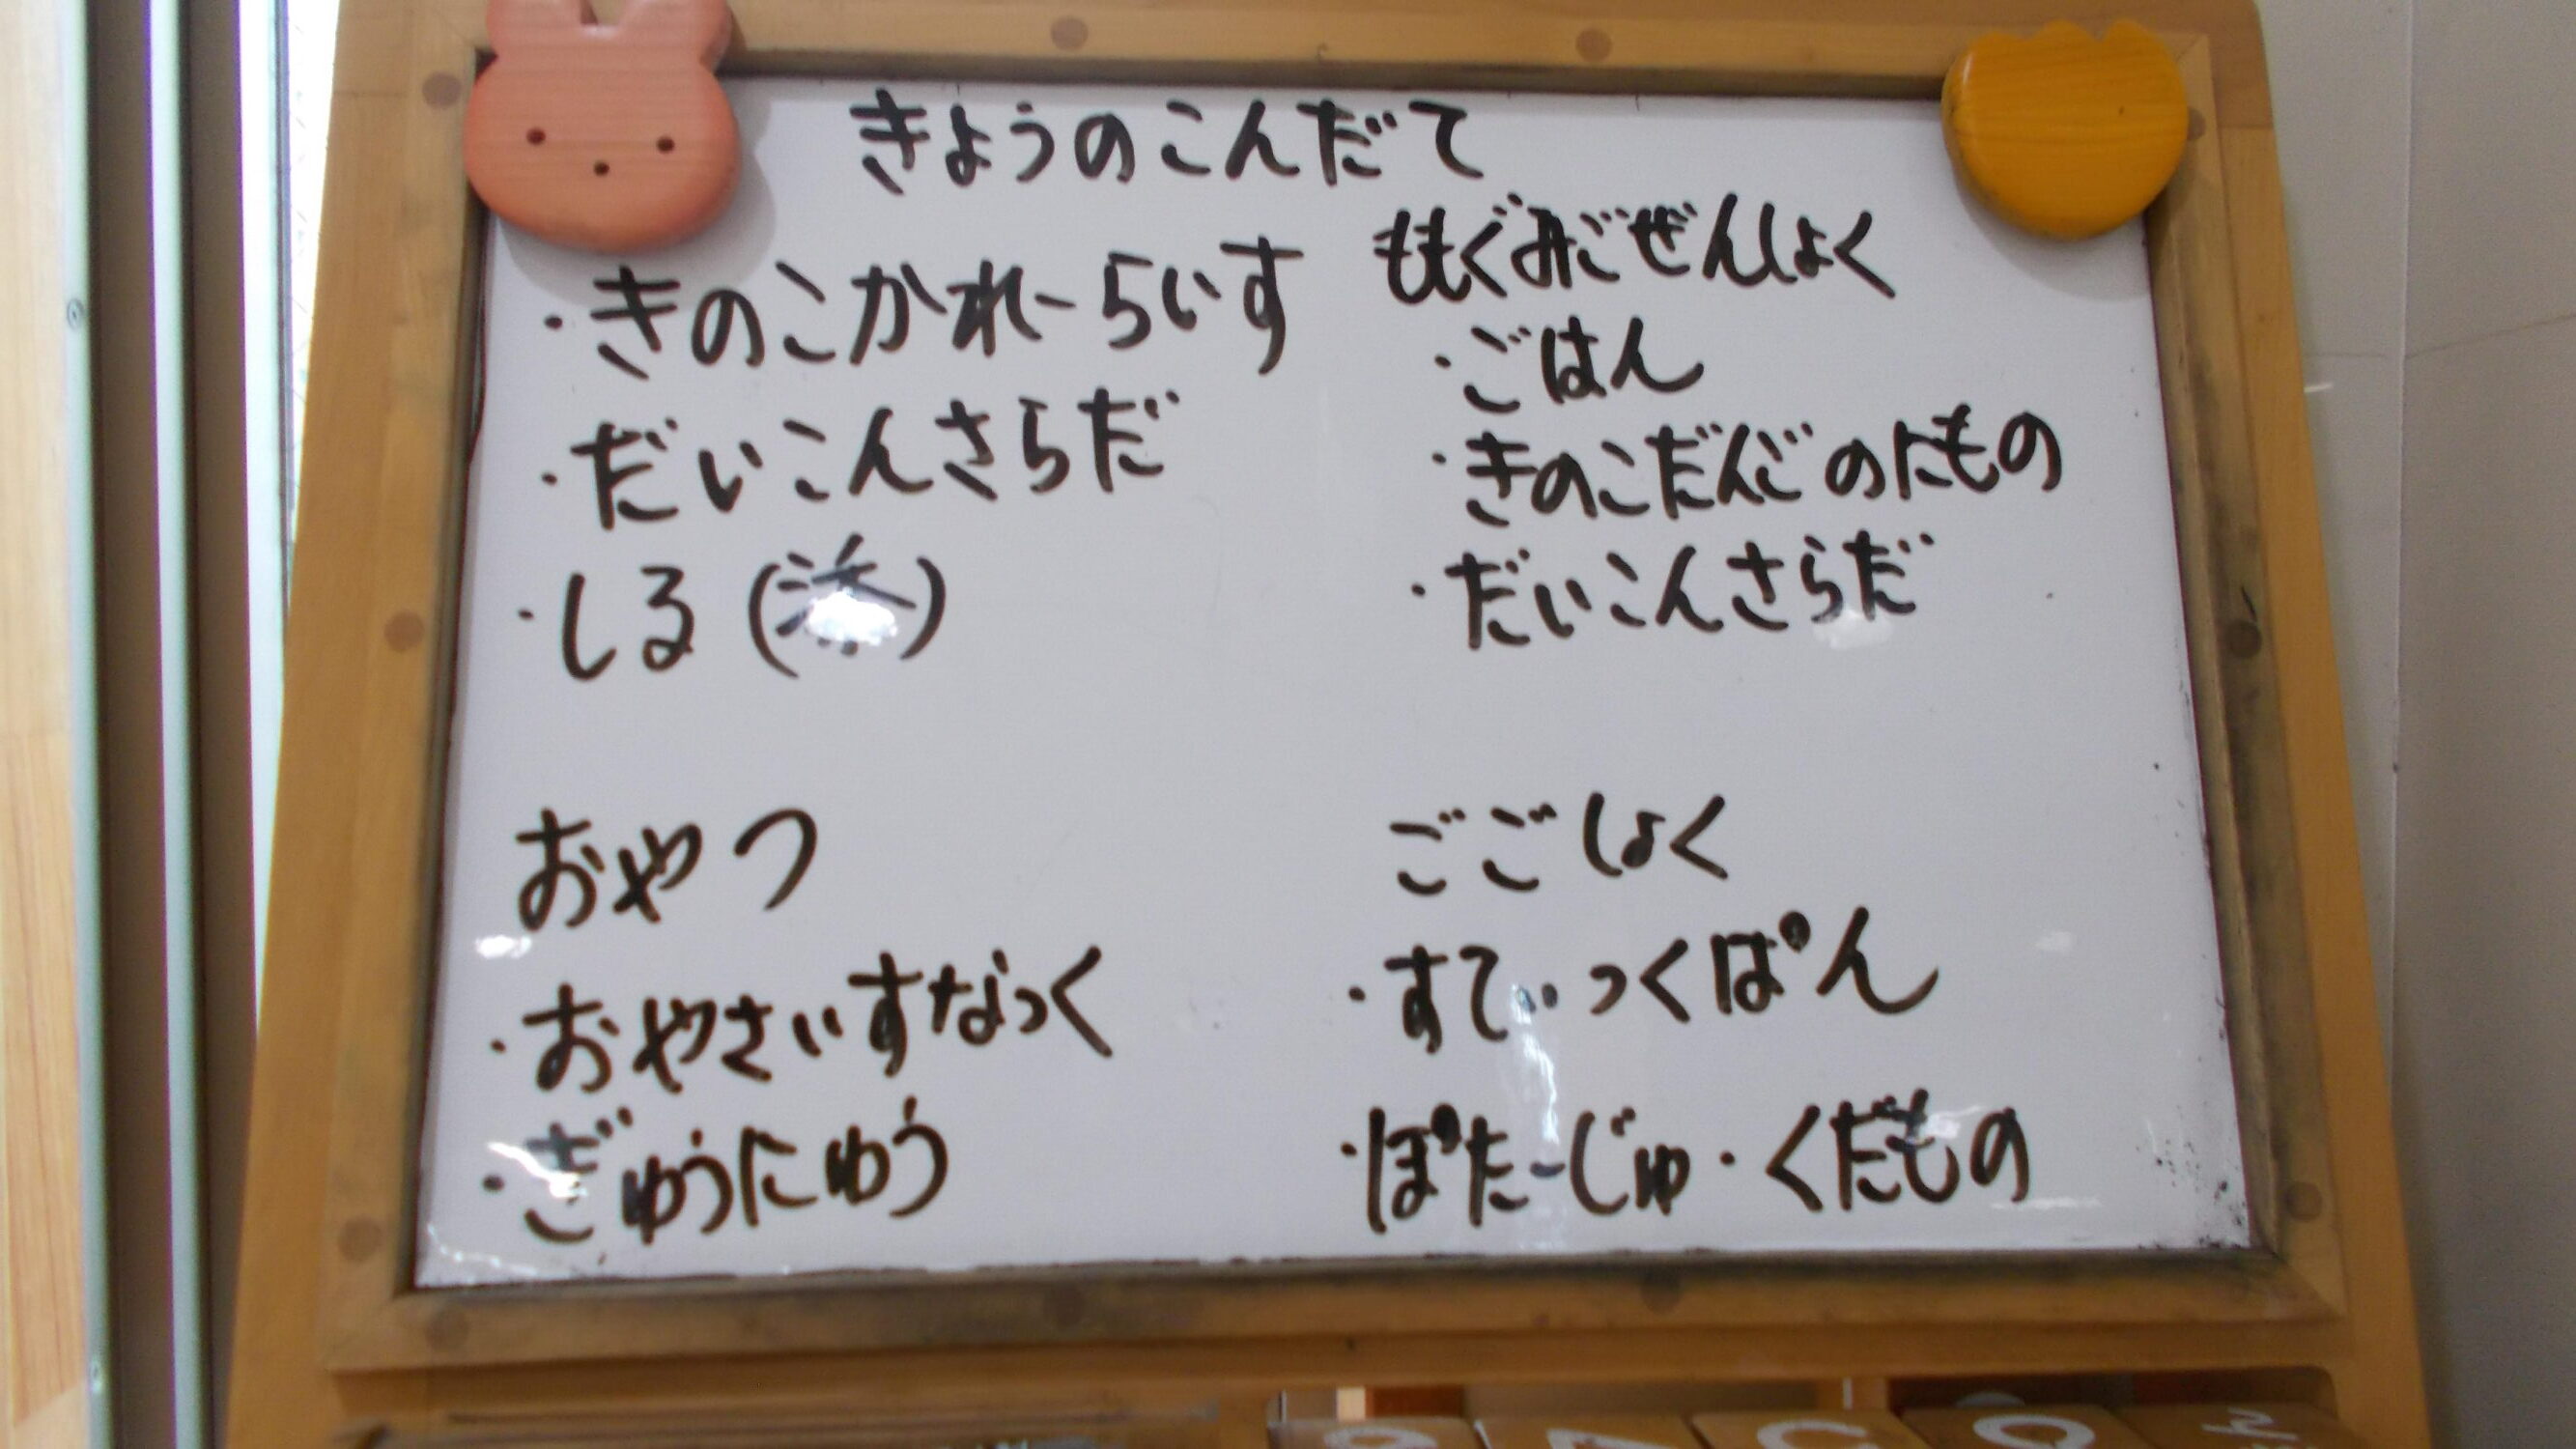 きょうのこんだて
・きのこかれーらいす
・だいこんさらだ
・しる()
ももぐみごぜんしょく
・ごはん
・きのこだんごのにもの
・だいこんさらだ
おやつ
・おやさいすなっく
・ぎゅうにゅう
ごごしょく
・すてぃっくぱん
・ぽたーじゅ・くだもの